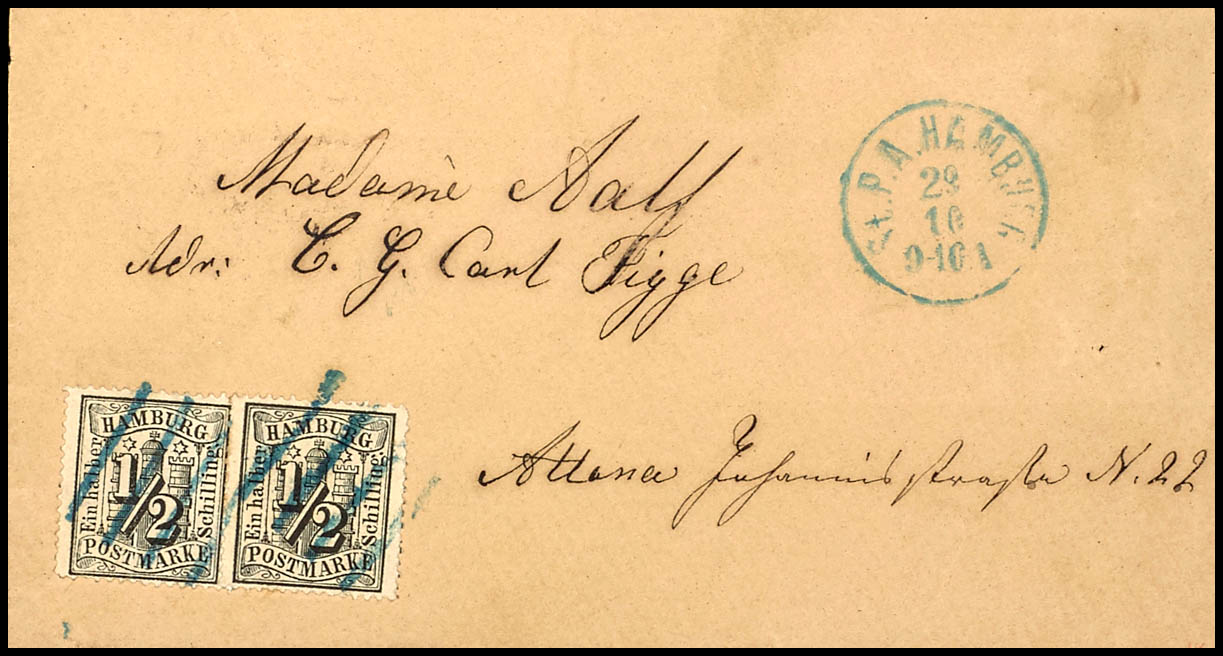 Madame Aalf
Adr: C. G. Carl Figge
St. P. A. HAMBURG
29
10
9-10 A
Altona Johannisstraße N. 22
HAMBURG
Ein halber
1/2
Schilling
POSTMARKE
HAMBURG
Ein halber
1/2
Schilling
POSTMARKE